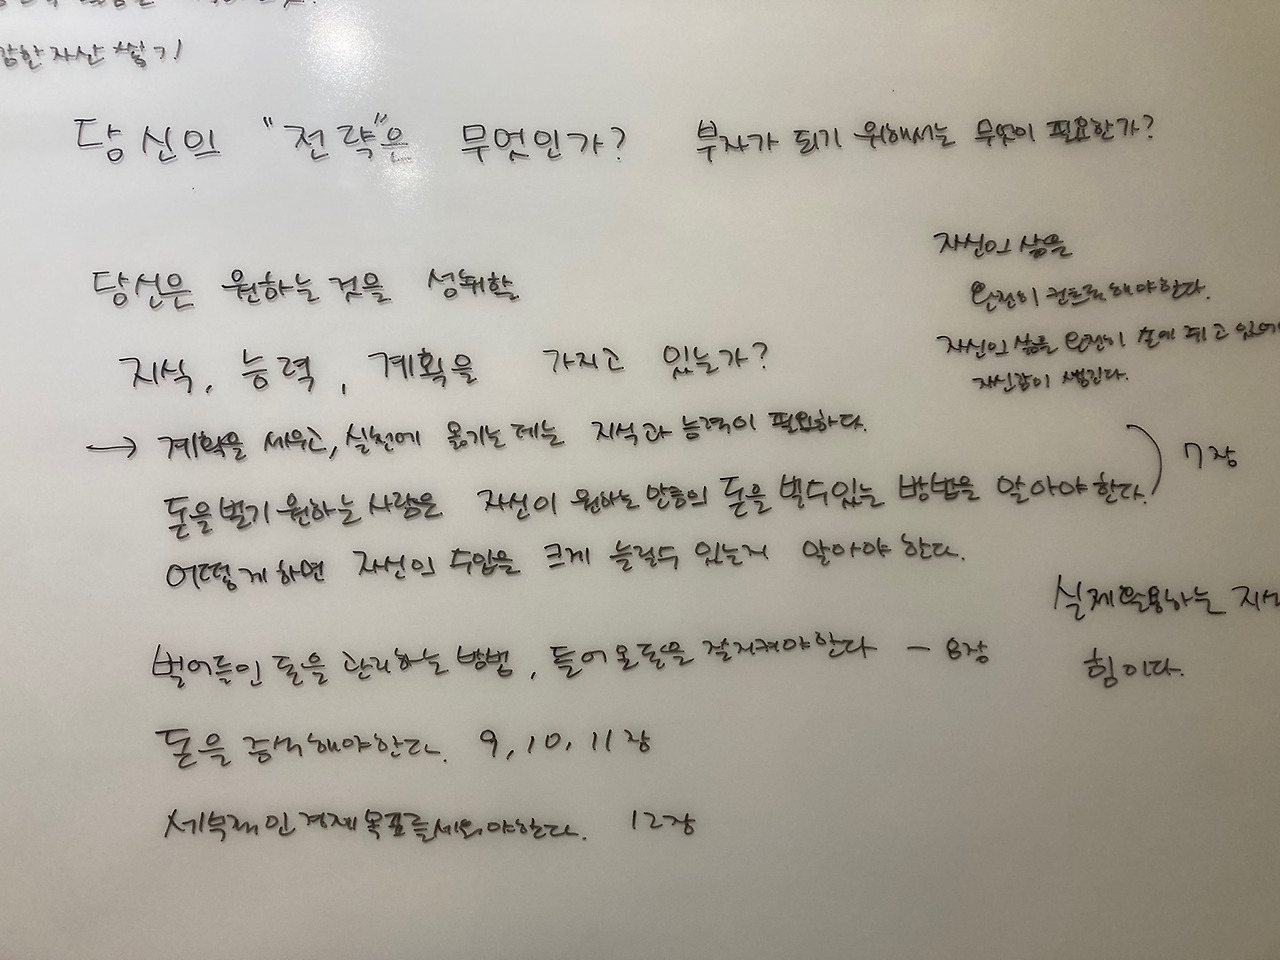 강한 자산 쌓기
당신의 "전략"은 무엇인가? 부자가 되기 위해서는 무엇이 필요한가?
자신의 삶을
완전히 컨트롤해야한다.
자신의 삶을 완전히 손에 쥐고 있어야
자신감이 생긴다.
당신은 원하는 것을 성취할
지식, 능력, 계획을 가지고 있는가?
→ 계획을 세우고, 실천에 옮기는데는 지식과 능력이 필요하다.
돈을 벌기 원하는 사람은 자신이 원하는 만큼의 돈을 벌수있는 방법을 알아야 한다. 7장
어떻게 하면 자신의 수입을 크게 늘릴수 있는지 알아야 한다.
실제 활용하는 지식
힘이다.
벌어들인 돈을 관리하는 방법, 들어온 돈을 잘 지켜야한다 - 8장
돈을 증식해야한다. 9, 10, 11장
세부적인 경제 목표를 세워야한다. 12장